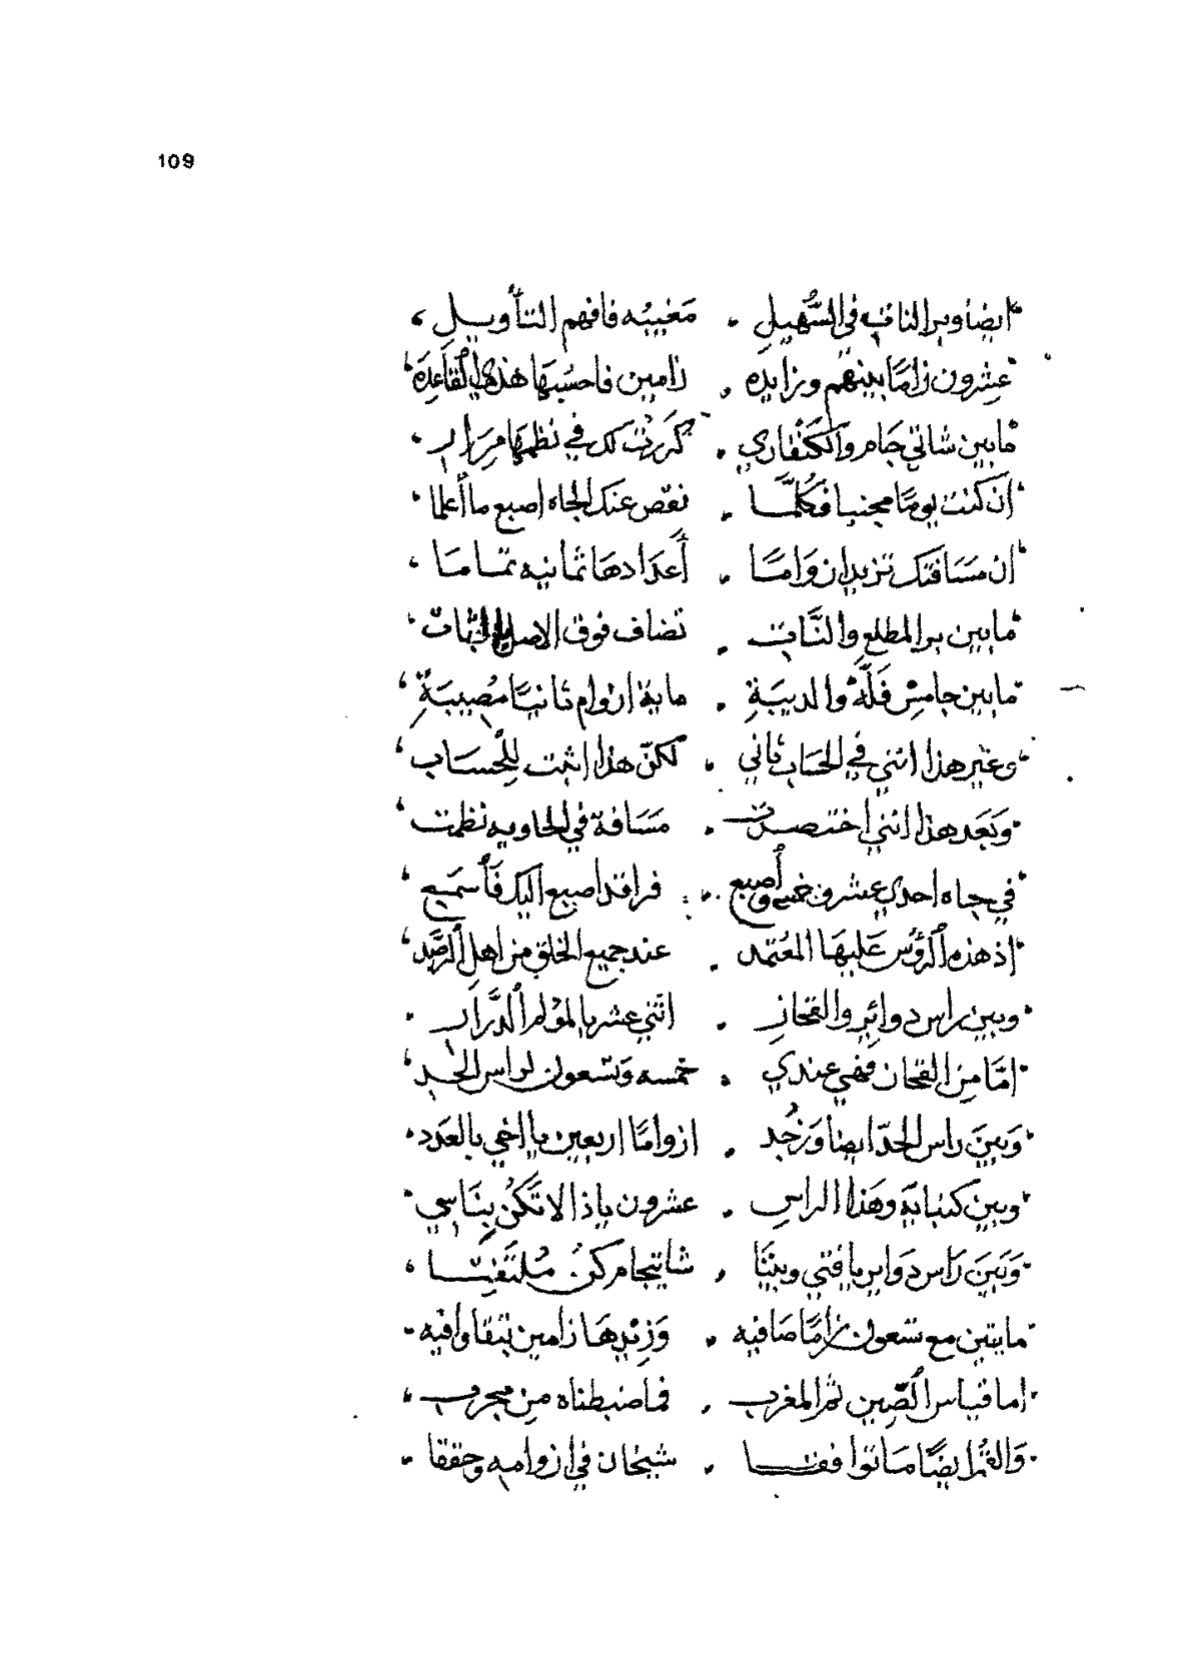 109
ايضا وبر الناتِ في السُّهيلِ . مَغيبُه فافهم التأويلِ
عِشرون زامًا بينهم وزايده . زامين فاحسُبهَا هذي القَاعِدَه
مابين شاتي جَام والكَنْفاري . كررت لك في نظمها مِرَارِ
ان كنت يومًا مجنبا فكلَّمَا . نقص عنك الجاه اصبع ما أعلما
ان مسَافتك تزيد ازوَامًا . أعدَادهَا ثمانيه تمامَا
مابين بر المطلع والنَّاتِ . تضاف فوق الاصل
مابين جامِسْ فَلَّهْ والديبَةِ . ماية ازوام ثانيًا مُصِيبَةِ
وغير هذا انني في الحسَاب ثاني . لكنّ هذا اثبت للِحسَاب
وبَعَد هذا انني اختصرت . مَسَافة في الحاويه نظمت
في جاه احدي عشر ونصف اصبع . فراقد اصبع اليك فَاسمَعِ
اذ هذه الرؤس عَليهَا المعُتمد . عند جميع الخلق من اهل الرَّصَد
وبين راس دوائر والقحازِ . اثني عشر يا لمؤلم الدَّرَارِ
امّا من القحاز فهي عندي . خمسه وتسعون لراس الحَدِ
وَبينَ راس الحدّ ايضا وَزجُد . ازوامًا اربعين يا اخي بالعَدَد
وبين كنباية وهَذا الراسِ . عشرون يا ذا لا تَكُنْ بِنَاسِي
وَبَينَ رَاس دَوايِر يا فتي وبينَا . شاتيجام كنُ مُلتَفِتَا
مايتين مع تسعون زامًا صَافيه . وَزِيْدهَا زامين تبقا وافيه
اما قياس الصّين ثم المغرب . فما ضبطناه من مجرب
وَالثمُ ايضًا مَا توافقا . شيخان في ازوامه وحققا